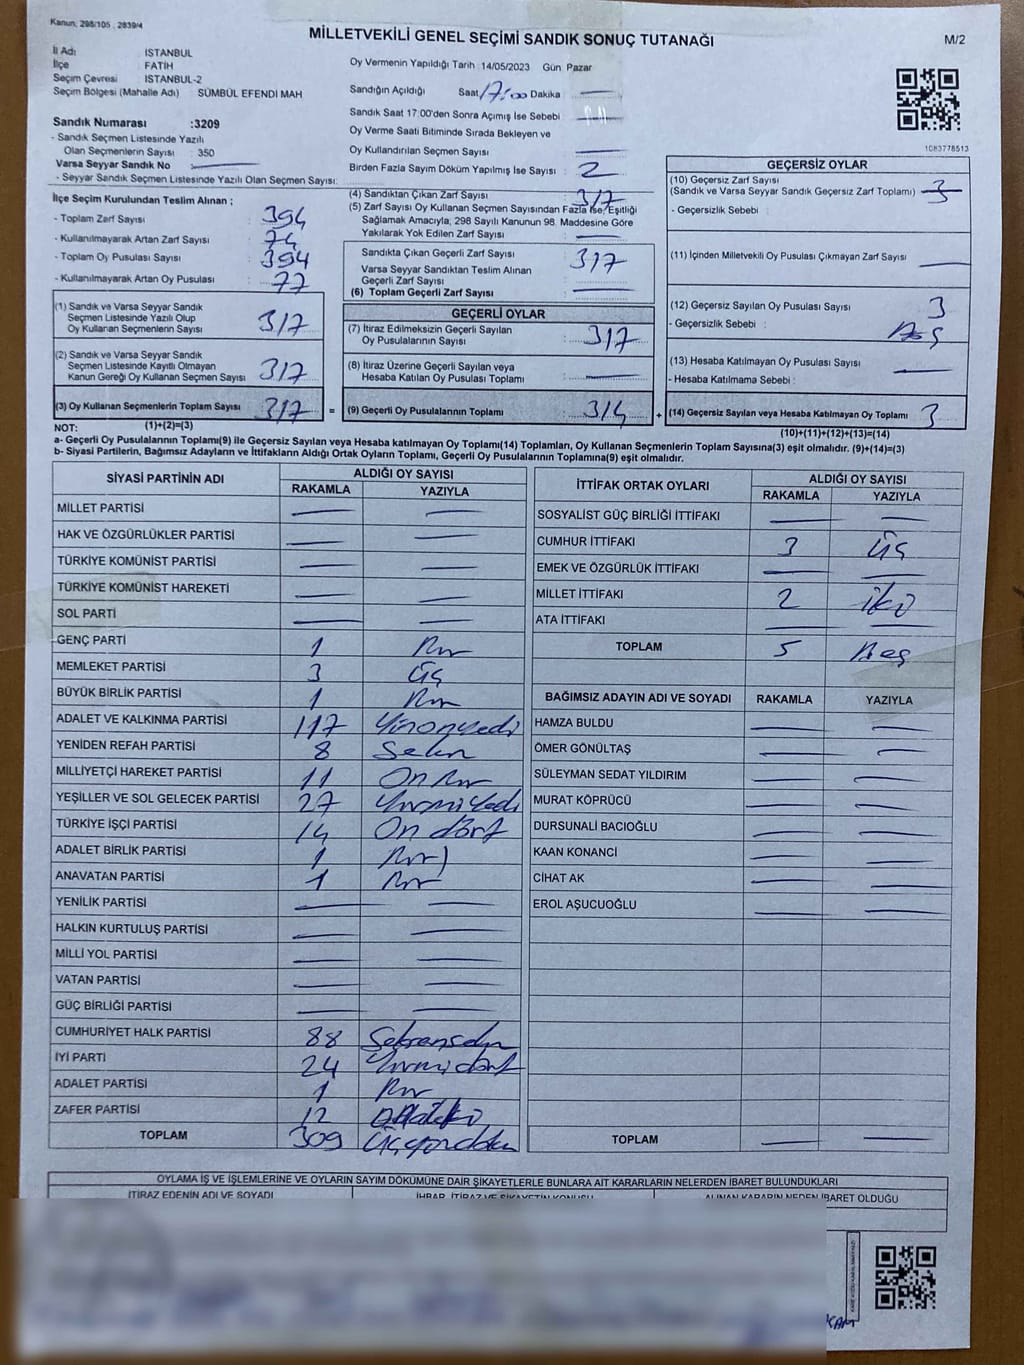 Kanun: 298/105 , 2839/4
MİLLETVEKİLİ GENEL SEÇİMİ SANDIK SONUÇ TUTANAĞI
M/2
İl Adı ISTANBUL
İlçe FATİH
Seçim Çevresi ISTANBUL-2
Seçim Bölgesi (Mahalle Adı) SÜMBÜL EFENDI MAH
Sandık Numarası :3209
- Sandık Seçmen Listesinde Yazılı
Olan Seçmenlerin Sayısı : 350
Varsa Seyyar Sandık No
- Seyyar Sandık Seçmen Listesinde Yazılı Olan Seçmen Sayısı:
Oy Vermenin Yapıldığı Tarih :14/05/2023 Gün Pazar
Sandığın Açıldığı Saat 17:00 Dakika
Sandık Saat 17:00'den Sonra Açımış İse Sebebi
Oy Verme Saati Bitiminde Sırada Bekleyen ve
Oy Kullandırılan Seçmen Sayısı
Birden Fazla Sayım Döküm Yapılmış İse Sayısı : 2
1083778513
İlçe Seçim Kurulundan Teslim Alınan ;
- Toplam Zarf Sayısı : 394
- Kullanılmayarak Artan Zarf Sayısı : 74
- Toplam Oy Pusulası Sayısı : 394
- Kullanılmayarak Artan Oy Pusulası : 77
(1) Sandık ve Varsa Seyyar Sandık
Seçmen Listesinde Yazılı Olup
Oy Kullanan Seçmenlerin Sayısı 317
(2) Sandık ve Varsa Seyyar Sandık
Seçmen Listesinde Kayıtlı Olmayan
Kanun Gereği Oy Kullanan Seçmen Sayısı 317
(3) Oy Kullanan Seçmenlerin Toplam Sayısı 317 =
(1)+(2)=(3)
(4) Sandıktan Çıkan Zarf Sayısı : 317
(5) Zarf Sayısı Oy Kullanan Seçmen Sayısından Fazla İse, Eşitliği
Sağlamak Amacıyla, 298 Sayılı Kanunun 98. Maddesine Göre
Yakılarak Yok Edilen Zarf Sayısı :
Sandıkta Çıkan Geçerli Zarf Sayısı : 317
Varsa Seyyar Sandıktan Teslim Alınan
Geçerli Zarf Sayısı
(6) Toplam Geçerli Zarf Sayısı :
GEÇERLİ OYLAR
(7) İtiraz Edilmeksizin Geçerli Sayılan
Oy Pusulalarının Sayısı : 317
(8) İtiraz Üzerine Geçerli Sayılan veya
Hesaba Katılan Oy Pusulası Toplamı :
(9) Geçerli Oy Pusulalarının Toplamı : 314 +
GEÇERSİZ OYLAR
(10) Geçersiz Zarf Sayısı
(Sandık ve Varsa Seyyar Sandık Geçersiz Zarf Toplamı) : 3
- Geçersizlik Sebebi :
(11) İçinden Milletvekili Oy Pusulası Çıkmayan Zarf Sayısı :
(12) Geçersiz Sayılan Oy Pusulası Sayısı : 3
- Geçersizlik Sebebi :
(13) Hesaba Katılmayan Oy Pusulası Sayısı :
- Hesaba Katılmama Sebebi :
(14) Geçersiz Sayılan veya Hesaba Katılmayan Oy Toplamı : 3
(10)+(11)+(12)+(13)=(14)
NOT:
a- Geçerli Oy Pusulalarının Toplamı(9) ile Geçersiz Sayılan veya Hesaba katılmayan Oy Toplamı(14) Toplamları, Oy Kullanan Seçmenlerin Toplam Sayısına(3) eşit olmalıdır. (9)+(14)=(3)
b- Siyasi Partilerin, Bağımsız Adayların ve İttifakların Aldığı Ortak Oyların Toplamı, Geçerli Oy Pusulalarının Toplamına(9) eşit olmalıdır.
SİYASİ PARTİNİN ADI ALDIĞI OY SAYISI
RAKAMLA YAZIYLA
MİLLET PARTİSİ
HAK VE ÖZGÜRLÜKLER PARTİSİ
TÜRKİYE KOMÜNİST PARTİSİ
TÜRKİYE KOMÜNİST HAREKETİ
SOL PARTİ
GENÇ PARTİ 1 Bir
MEMLEKET PARTİSİ 3 Üç
BÜYÜK BİRLİK PARTİSİ 1 Bir
ADALET VE KALKINMA PARTİSİ 117 Yüzonyedi
YENİDEN REFAH PARTİSİ 8 Sekiz
MİLLİYETÇİ HAREKET PARTİSİ 11 On Bir
YEŞİLLER VE SOL GELECEK PARTİSİ 27 Yirmi Yedi
TÜRKİYE İŞÇİ PARTİSİ 14 On dört
ADALET BİRLİK PARTİSİ 1 Bir
ANAVATAN PARTİSİ 1 Bir
YENİLİK PARTİSİ
HALKIN KURTULUŞ PARTİSİ
MİLLİ YOL PARTİSİ
VATAN PARTİSİ
GÜÇ BİRLİĞİ PARTİSİ
CUMHURİYET HALK PARTİSİ 88 Seksensekiz
İYİ PARTİ 24 Yirmidört
ADALET PARTİSİ 1 Bir
ZAFER PARTİSİ 12
TOPLAM 309 Üçyüzdokuz
İTTİFAK ORTAK OYLARI ALDIĞI OY SAYISI
RAKAMLA YAZIYLA
SOSYALİST GÜÇ BİRLİĞİ İTTİFAKI
CUMHUR İTTİFAKI 3 Üç
EMEK VE ÖZGÜRLÜK İTTİFAKI
MİLLET İTTİFAKI 2 iki
ATA İTTİFAKI
TOPLAM 5 Beş
BAĞIMSIZ ADAYIN ADI VE SOYADI RAKAMLA YAZIYLA
HAMZA BULDU
ÖMER GÖNÜLTAŞ
SÜLEYMAN SEDAT YILDIRIM
MURAT KÖPRÜCÜ
DURSUNALİ BACIOĞLU
KAAN KONANCİ
CİHAT AK
EROL AŞUCUOĞLU
TOPLAM
OYLAMA İŞ VE İŞLEMLERİNE VE OYLARIN SAYIM DÖKÜMÜNE DAİR ŞİKAYETLERLE BUNLARA AİT KARARLARIN NELERDEN İBARET BULUNDUKLARI
İTİRAZ EDENİN ADI VE SOYADI İHBAR, İTİRAZ VE ŞİKAYETİN KONUSU ALINAN KARARIN NEDEN İBARET OLDUĞU